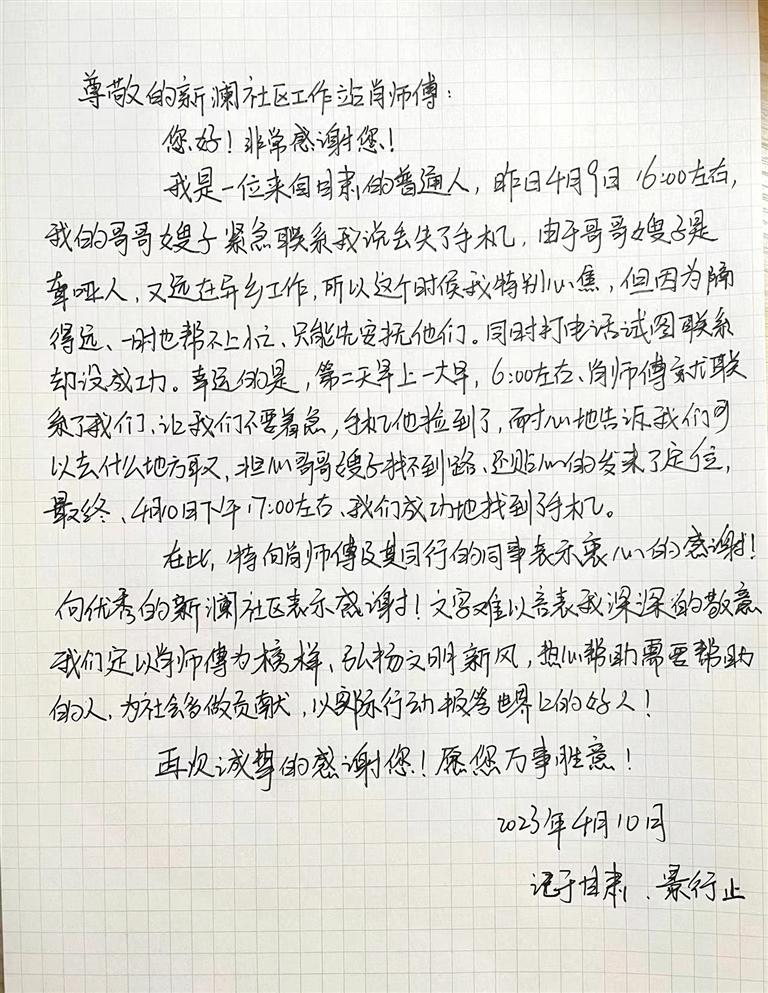 尊敬的新澜社区工作站肖师傅：
您好！非常感谢您！
我是一位来自甘肃的普通人，昨日4月9日 16:00左右，
我的哥哥嫂子紧急联系我说丢失了手机，由于哥哥嫂子是
聋哑人，又远在异乡工作，所以这个时候我特别心焦，但因为隔
得远、一时也帮不上忙、只能先安抚他们。同时打电话试图联系
却没成功。幸运的是，第二天早上一大早，6:00左右、肖师傅就联
系了我们、让我们不要着急，手机他捡到了，耐心地告诉我们可
以去什么地方取，担心哥哥嫂子找不到路、还贴心的发来了定位，
最终、4月10日下午17:00左右、我们成功地找到了手机。
在此，特向肖师傅及其同行的同事表示衷心的感谢！
向优秀的新澜社区表示感谢！文字难以言表我深深的敬意
我们定以肖师傅为榜样、弘扬文明新风，热心帮助需要帮助
的人，为社会多做贡献，以实际行动报答世界上的好人！
再次诚挚的感谢您！愿您万事胜意！
2023年4月10日
记于甘肃、景行止